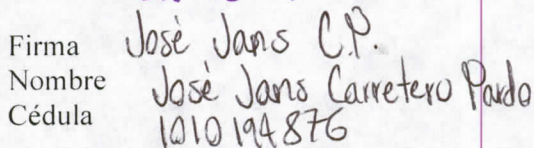 Firma José Jans C.P.
Nombre José Jans Carretero Pardo
Cédula 1010194876